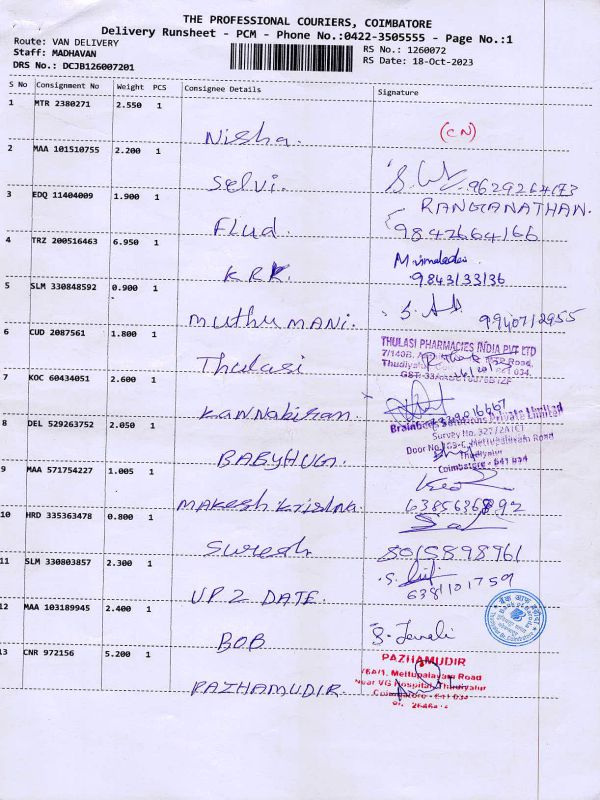 THE PROFESSIONAL COURIERS, COIMBATORE
Delivery Runsheet - PCM - Phone No.:0422-3505555 - Page No.:1
Route: VAN DELIVERY
RS No.: 1260072
Staff: MADHAVAN
RS Date: 18-Oct-2023
DRS No.: DCJB126007201
S No Consignment No Weight PCS Consignee Details Signature
1 MTR 2380271 2.550 1
Nisha. (CN)
2 MAA 101510755 2.200 1
Selvi. 9629264173
3 EDQ 11404009 1.900 1
RANGANATHAN.
Flud. 9842664166
4 TRZ 200516463 6.950 1
KRK 9843133136
5 SLM 330848592 0.900 1
Muthu MANi. 9940712955
6 CUD 2087561 1.800 1
THULASI PHARMACIES INDIA PVT LTD
7/140B, Road,
Thudiyalur 641 034.
Thulasi
7 KOC 60434051 2.600 1
Kannabiran.
8 DEL 529263752 2.050 1
Private Limited
Survey No. 327/2A1C1
Door No. Mettupalayam Road
Thudiyalur
Coimbatore - 641 034
BABYHUG.
9 MAA 571754227 1.005 1
Makesh Krishna.
10 HRD 335363478 0.800 1
Suresh 8015898961
11 SLM 330803857 2.300 1
UP 2 DATE. 6381101759
12 MAA 103189945 2.400 1
BOB
13 CNR 972156 5.200 1
PAZHAMUDIR
Mettupalayam Road
Near VG Hospital, Thudiyalur
Coimbatore - 641 034
PAZHAMUDIR.